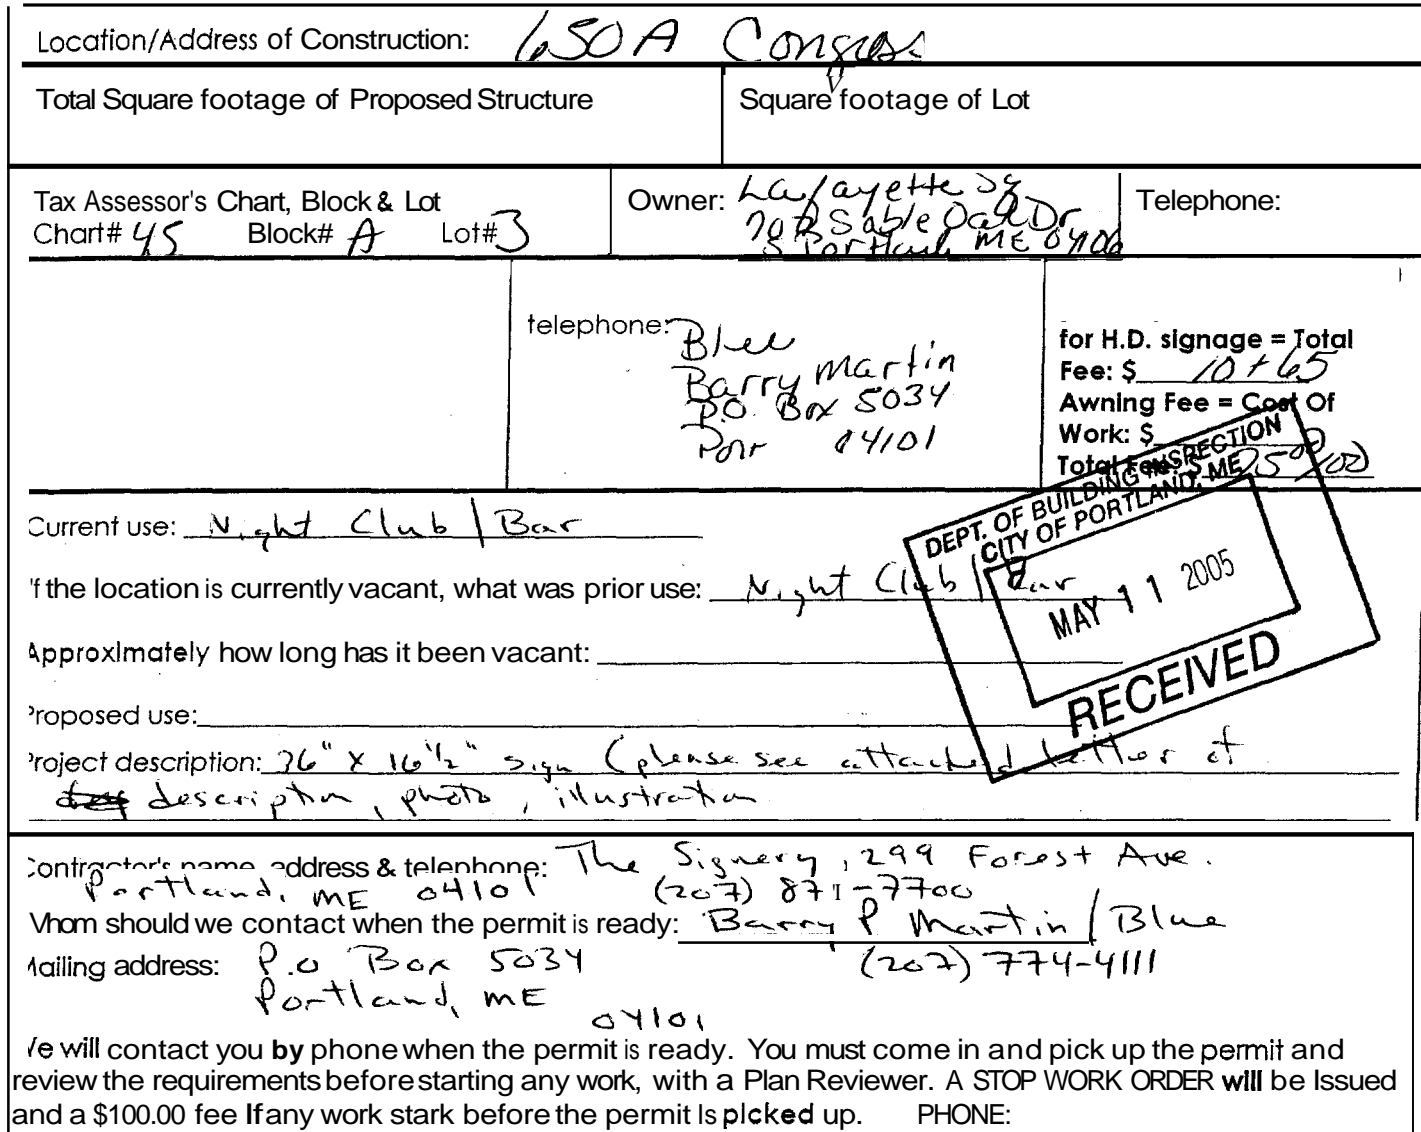 Location/Address of Construction: 650 A Congress
Total Square footage of Proposed Structure
Square footage of Lot
Tax Assessor's Chart, Block & Lot
Chart# 45 Block# A Lot# 3
Owner: Lafayette Sq
707 Sable Oak Dr
S Portland, ME 04106
Telephone:
telephone:
Blue
Barry Martin
P.O. Box 5034
Port 04101
for H.D. signage = Total
Fee: $ 10 + 65
Awning Fee = Cost Of
Work: $
Total Fee: $
DEPT. OF BUILDING INSPECTION
CITY OF PORTLAND, ME
MAY 11 2005
RECEIVED
Current use: Night Club / Bar
If the location is currently vacant, what was prior use: Night Club / Bar
Approximately how long has it been vacant:
Proposed use:
Project description: 36" x 16 1/2" sign (please see attached letter of
description, photo, illustration
Contractor's name, address & telephone: The Signery, 299 Forest Ave.
Portland, ME 04101 (207) 871-7700
Whom should we contact when the permit is ready: Barry P Martin / Blue
Mailing address: P.O Box 5034 (207) 774-4111
Portland, ME
04101
We will contact you by phone when the permit is ready. You must come in and pick up the permit and
review the requirements before starting any work, with a Plan Reviewer. A STOP WORK ORDER will be Issued
and a $100.00 fee If any work stark before the permit Is picked up. PHONE: